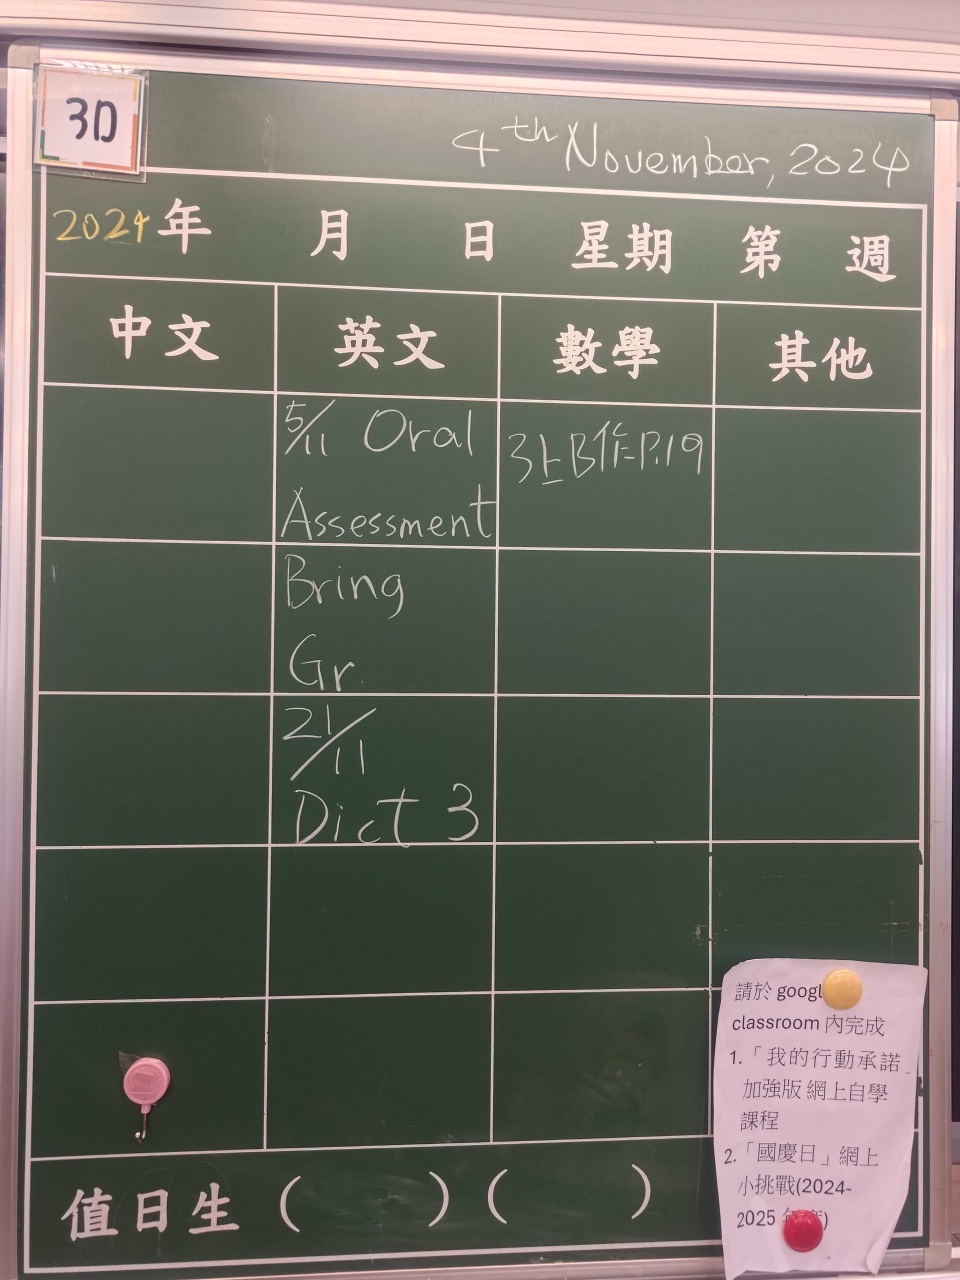 3D
4th November, 2024
2024年 月 日 星期 第 週
中文 英文 數學 其他
5/11 Oral
Assessment
3上B作P.19
Bring
Gr.
21/11
Dict 3
請於 googl
classroom 內完成
1.「我的行動承諾
加強版 網上自學
課程
2.「國慶日」網上
小挑戰(2024-
2025 年度)
值日生 ( ) ( )